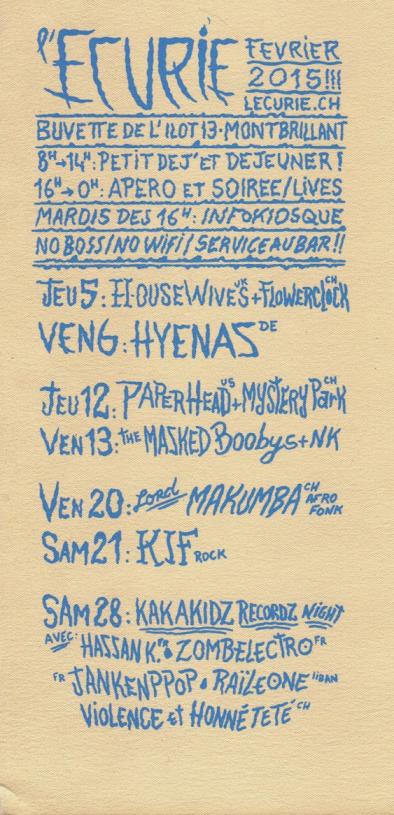 l'ECURIE FEVRIER
2015!!!
LECURIE.CH
BUVETTE DE L'ILOT 13 · MONTBRILLANT
8H→14H: PETIT DEJ' ET DEJEUNER!
16H→0H: APERO ET SOIREE/LIVES
MARDIS DES 16H: INFOKIOSQUE
NO BOSS/NO WiFi/SERVICE AU BAR!!
JEU 5: HOUSEWIVES UK + FLOWERCLOCK CH
VEN 6: HYENAS DE
JEU 12: PAPERHEAD US + MYSTERY PARK CH
VEN 13: THE MASKED Boobys + NK
VEN 20: Lord MAKUMBA CH AFRO FONK
SAM 21: KIF ROCK
SAM 28: KAKAKIDZ RECORDZ NIGHT
AVEC: HASSAN K. FR & ZOMBELECTRO FR
FR JANKENPPOP & RAÏLEONE LIBAN
VIOLENCE et HONNÉTETÉ CH